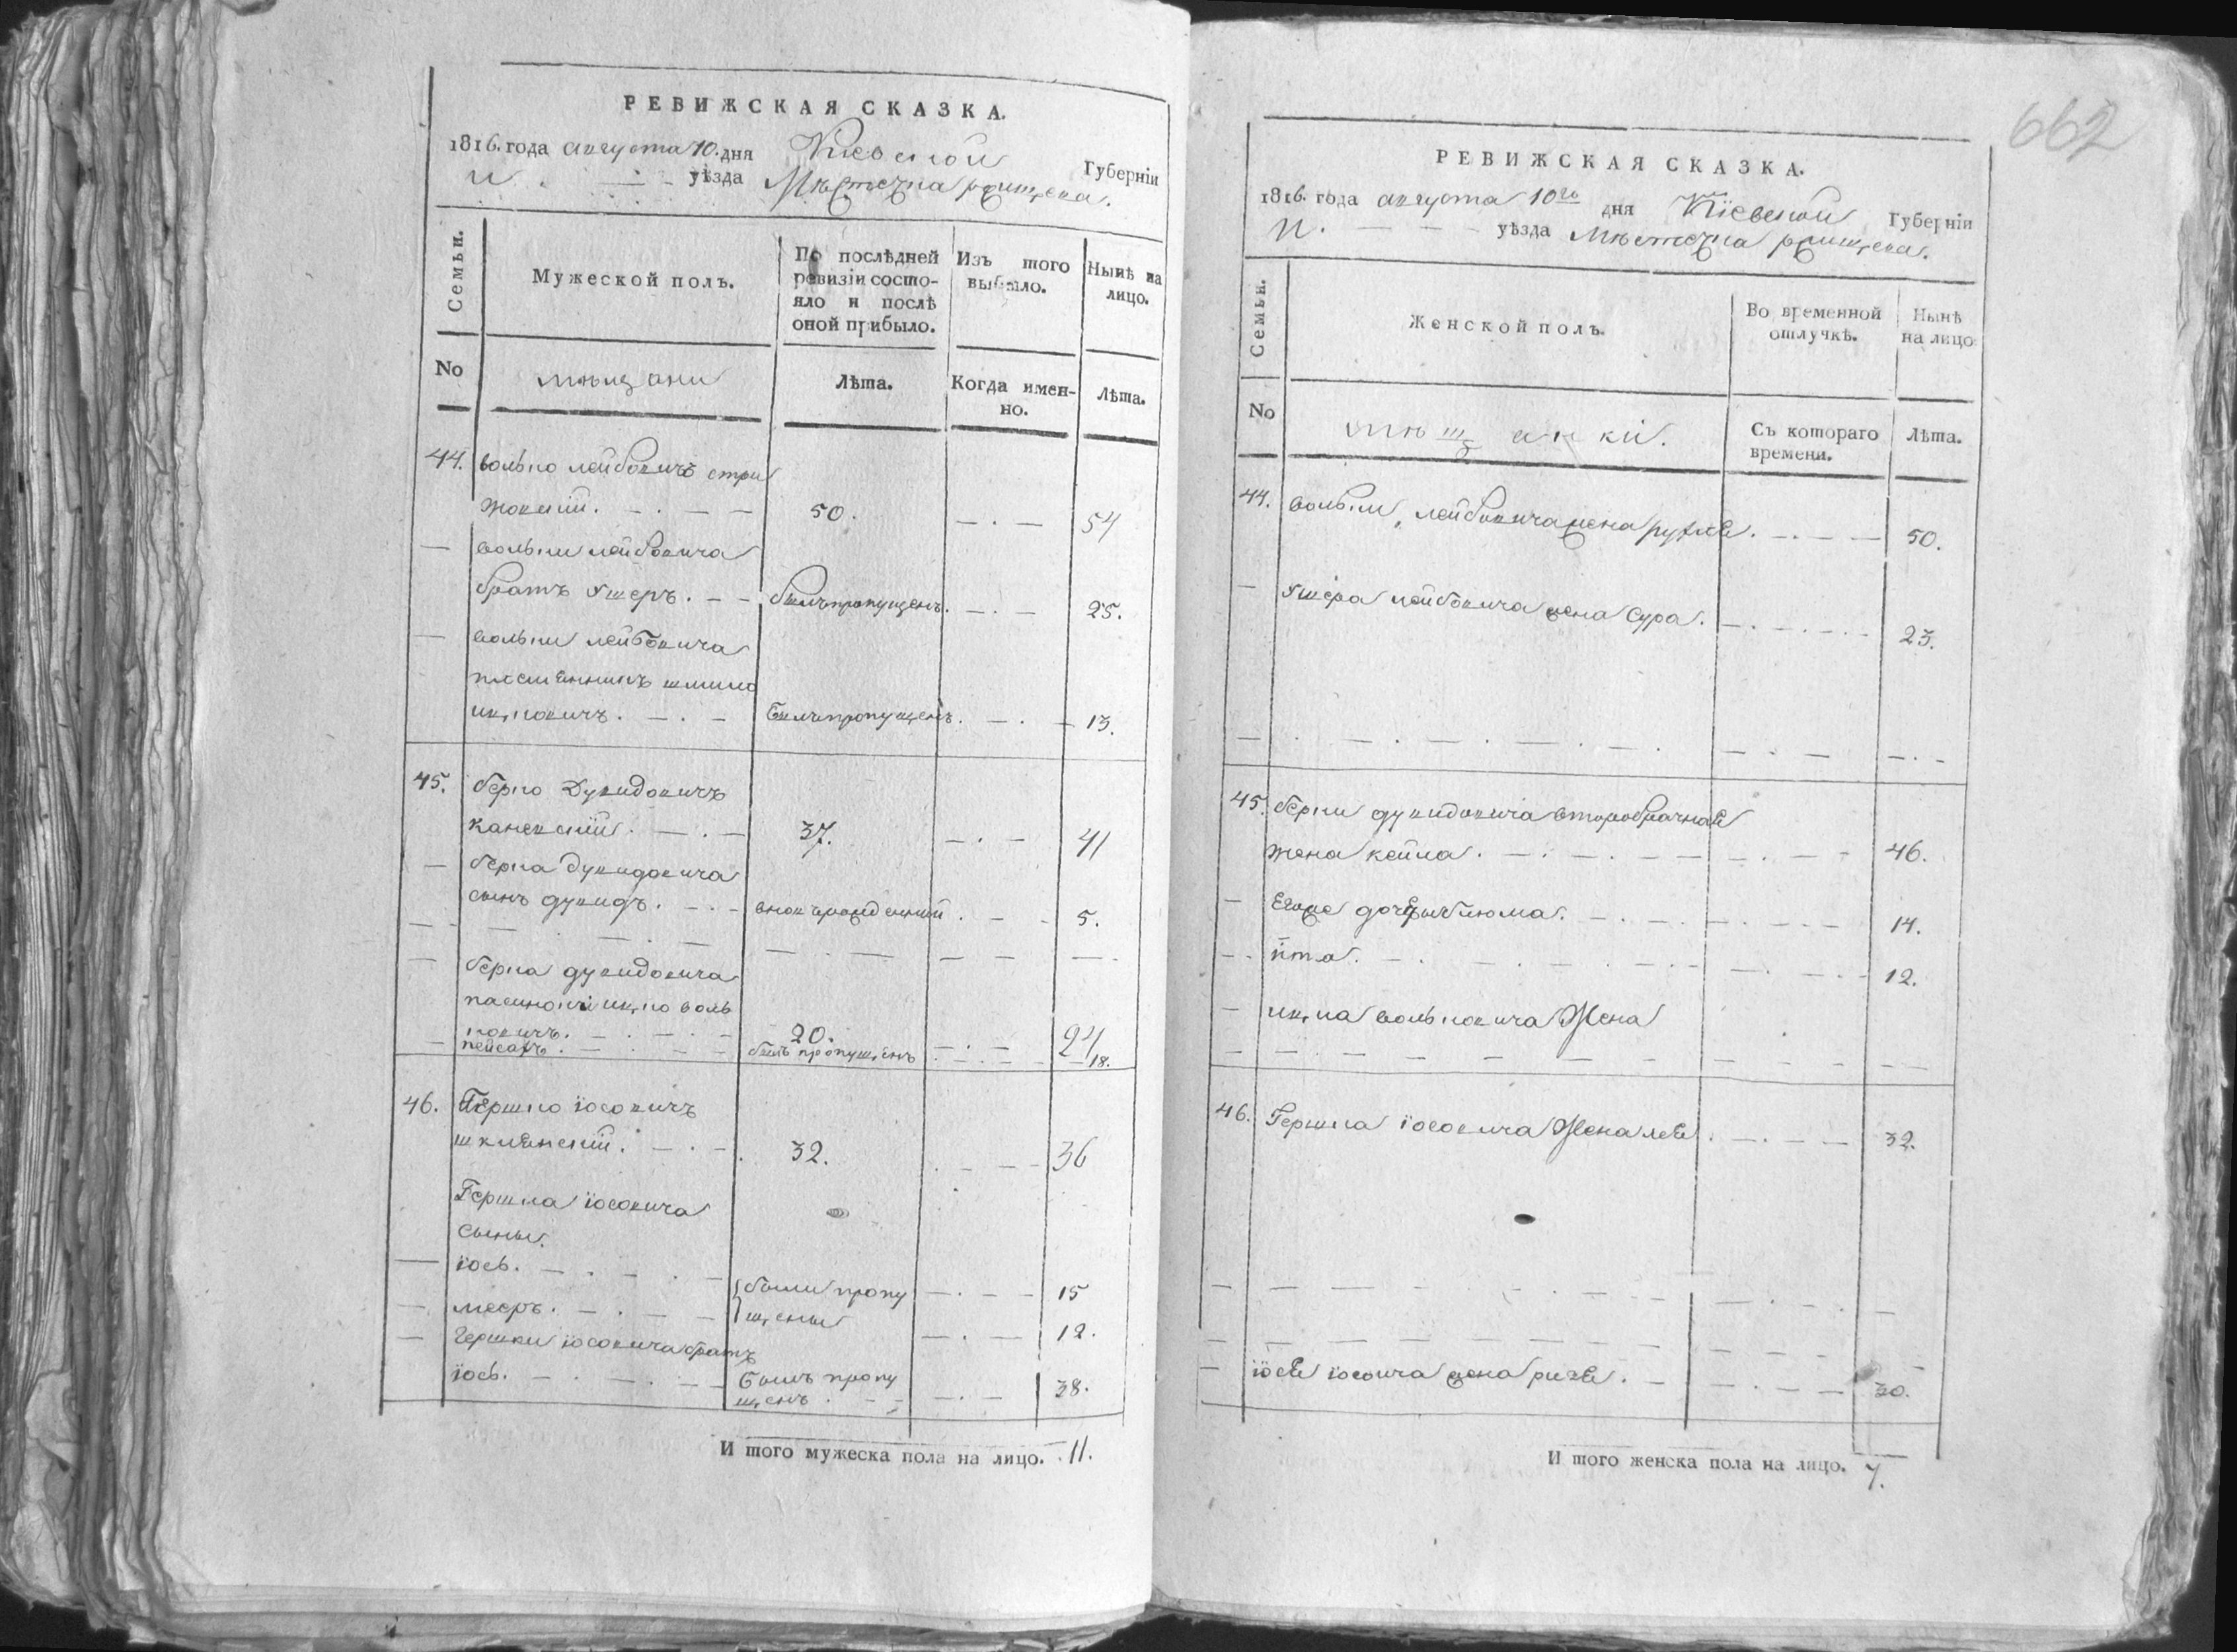 РЕВИЖСКАЯ СКАЗКА.
1816. года августа 10. дня Киевской Губерніи
уѣзда Мѣстечка
Семьи. Мужеской полъ. По послѣдней ревизіи состояло и послѣ оной прибыло. Изъ того выбыло. Нынѣ на лицо.
No мѣщани Лѣта. Когда именно. Лѣта.
44. волько лейбовичъ стри
жовский. 50. 54
— вольки лейбовича
братъ Ушеръ. былъ пропущенъ. 25.
— вольки лейбовича
племѣнникъ шлиома
ицковичъ. былъ пропущенъ. 13.
45. берко Дувидовичъ
каневский. 37. 41
— берка дувидовича
сынъ дувидъ. вновърожденный. 5.
— берка дувидовича
пасинокъ ицко воль
ковичъ. 20. 24
— пейсахъ. былъ пропущенъ 18.
46. Гершко іосовичъ
шклянский. 32. 36
Гершка іосовича
сыны.
— іось. были пропу 15
— мееръ. щены 12.
— Гершки іосовича братъ
іось. былъ пропу 38.
щенъ.
И того мужеска пола на лицо. 11.
662
РЕВИЖСКАЯ СКАЗКА.
1816. года августа 10го дня Киевской Губерніи
уѣзда Мѣстечка
Семьи. Женской полъ. Во временной отлучкѣ. Нынѣ на лицо
No мѣщанки. Съ котораго времени. Лѣта.
44. вольки лейбовича жена рухля. 50.
— Ушера лейбовича жена Сура. 23.
45. берки дувидовича второбрачная
жена кейла. 46.
— Егоже дочери блюма. 14.
— ита. 12.
— ицка вольковича Жена
46. Гершка іосовича Жена лея. 32.
— іося іосоича жена ривя. 30.
И того женска пола на лицо. 7.